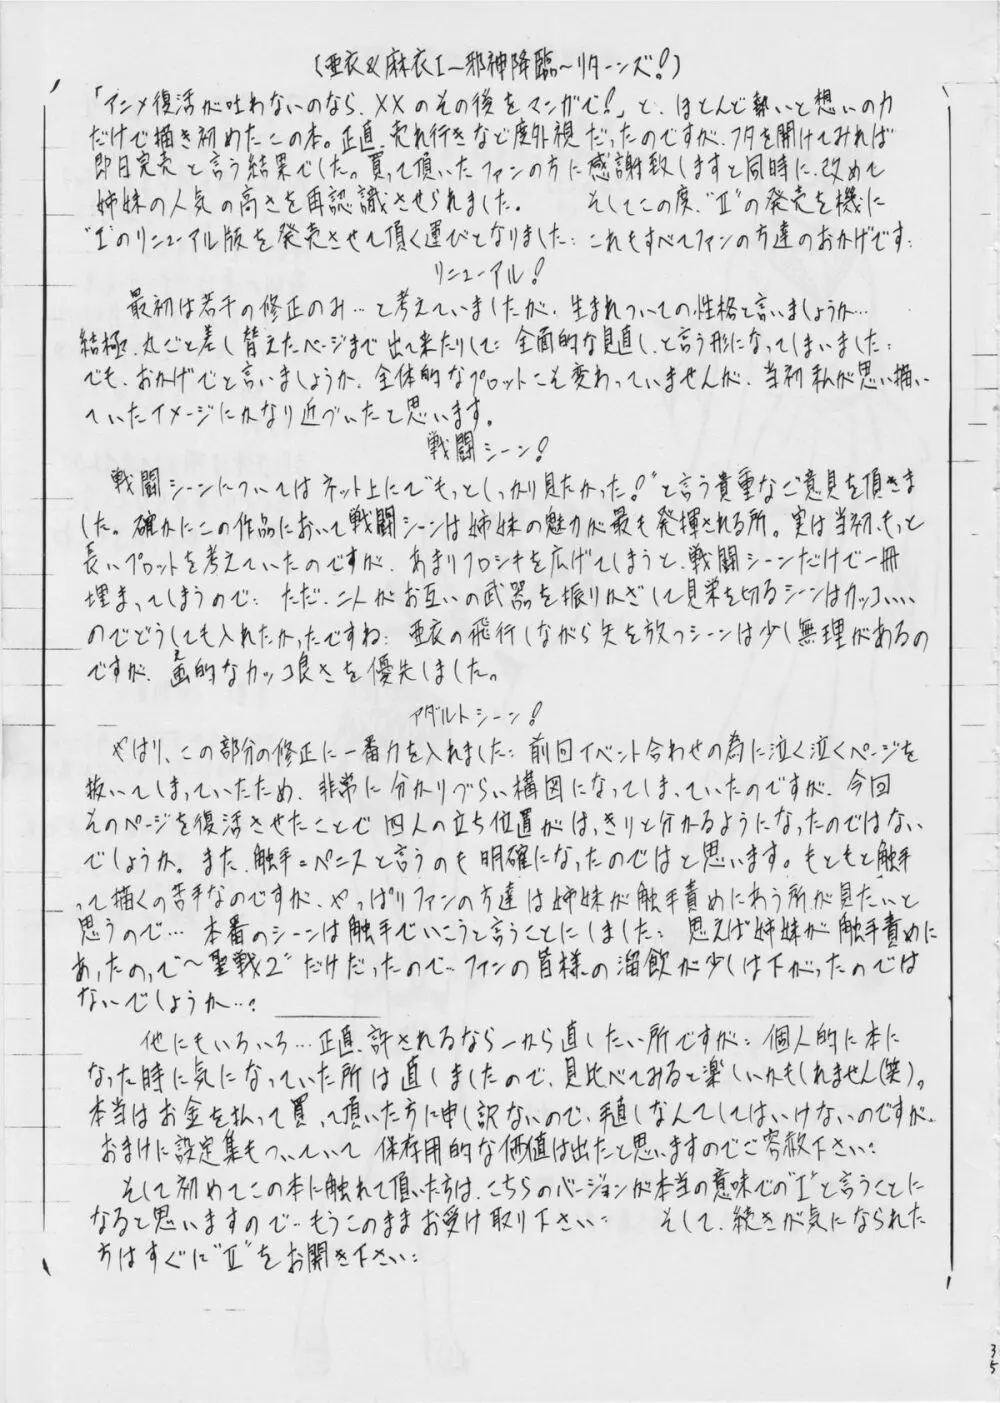 (亜衣&麻衣Ⅰ〜邪神降臨〜リターンズ!)
「アニメ復活が叶わないのなら、XXのその後をマンガで!」と、ほとんど勢いと想いの力
だけで描き初めたこの本。正直、売れ行きなど度外視だったのですが、フタを開けてみれば
即日完売と言う結果でした。買って頂いたファンの方に感謝致しますと同時に、改めて
姉妹の人気の高さを再認識させられました。 そしてこの度、"Ⅱ"の発売を機に
"Ⅰ"のリニューアル版を発売させて頂く運びとなりました: これもすべてファンの方達のおかげです:
リニューアル!
最初は若干の修正のみ…と考えていましたが、生まれついての性格と言いましょうか…
結極、丸ごと差し替えたページまで出て来たりして: 全面的な見直し、と言う形になってしまいました:
でも、おかげでと言いましょうか、全体的なプロットこそ変わっていませんが、当初私が思い描い
ていたイメージにかなり近づいたと思います。
戦闘シーン!
戦闘シーンについてはネット上にて"もっとしっかり見たかった!"と言う貴重なご意見を頂きま
した。確かにこの作品において戦闘シーンは姉妹の魅力が最も発揮される所。実は当初、もっと
長いプロットを考えていたのですが、あまりフロシキを広げてしまうと、戦闘シーンだけで一冊
埋まってしまうので: ただ、二人がお互いの武器を振りかざして見栄を切るシーンはカッコいい
のでどうしても入れたかったですね: 亜衣の飛行しながら矢を放つシーンは少し無理があるの
ですが、画的なカッコ良さを優先しました。
アダルトシーン!
やはり、この部分の修正に一番力を入れました: 前回イベント合わせの為に泣く泣くページを
抜いてしまっていたため、非常に分かりづらい構図になってしまっていたのですが、今回
そのページを復活させたことで四人の立ち位置がはっきりと分かるようになったのではない
でしょうか。また、触手=ペニスと言うのも明確になったのではと思います。もともと触手
って描くの苦手なのですが、やっぱりファンの方達は姉妹が触手責めにあう所が見たいと
思うので… 本番のシーンは触手でいこうと言うことにしました: 思えば姉妹が触手責めに
あったのって"〜聖戦2"だけだったので…ファンの皆様の溜飲が少しは下がったのでは
ないでしょうか…?
他にもいろいろ…正直、許されるなら一から直したい所ですが: 個人的に本に
なった時に気になっていた所は直しましたので、見比べてみると楽しいかもしれません(笑)。
本当はお金を払って買って頂いた方に申し訳ないので、手直しなんてしてはいけないのですが、
おまけに設定集もついていて 保存用的な価値は出たと思いますのでご容赦下さい:
そして初めてこの本に触れて頂いた方は、こちらのバージョンが本当の意味での"Ⅰ"と言うことに
なると思いますので…もうこのままお受け取り下さい: そして、続きが気になられた
方はすぐに"Ⅱ"をお開き下さい:
35